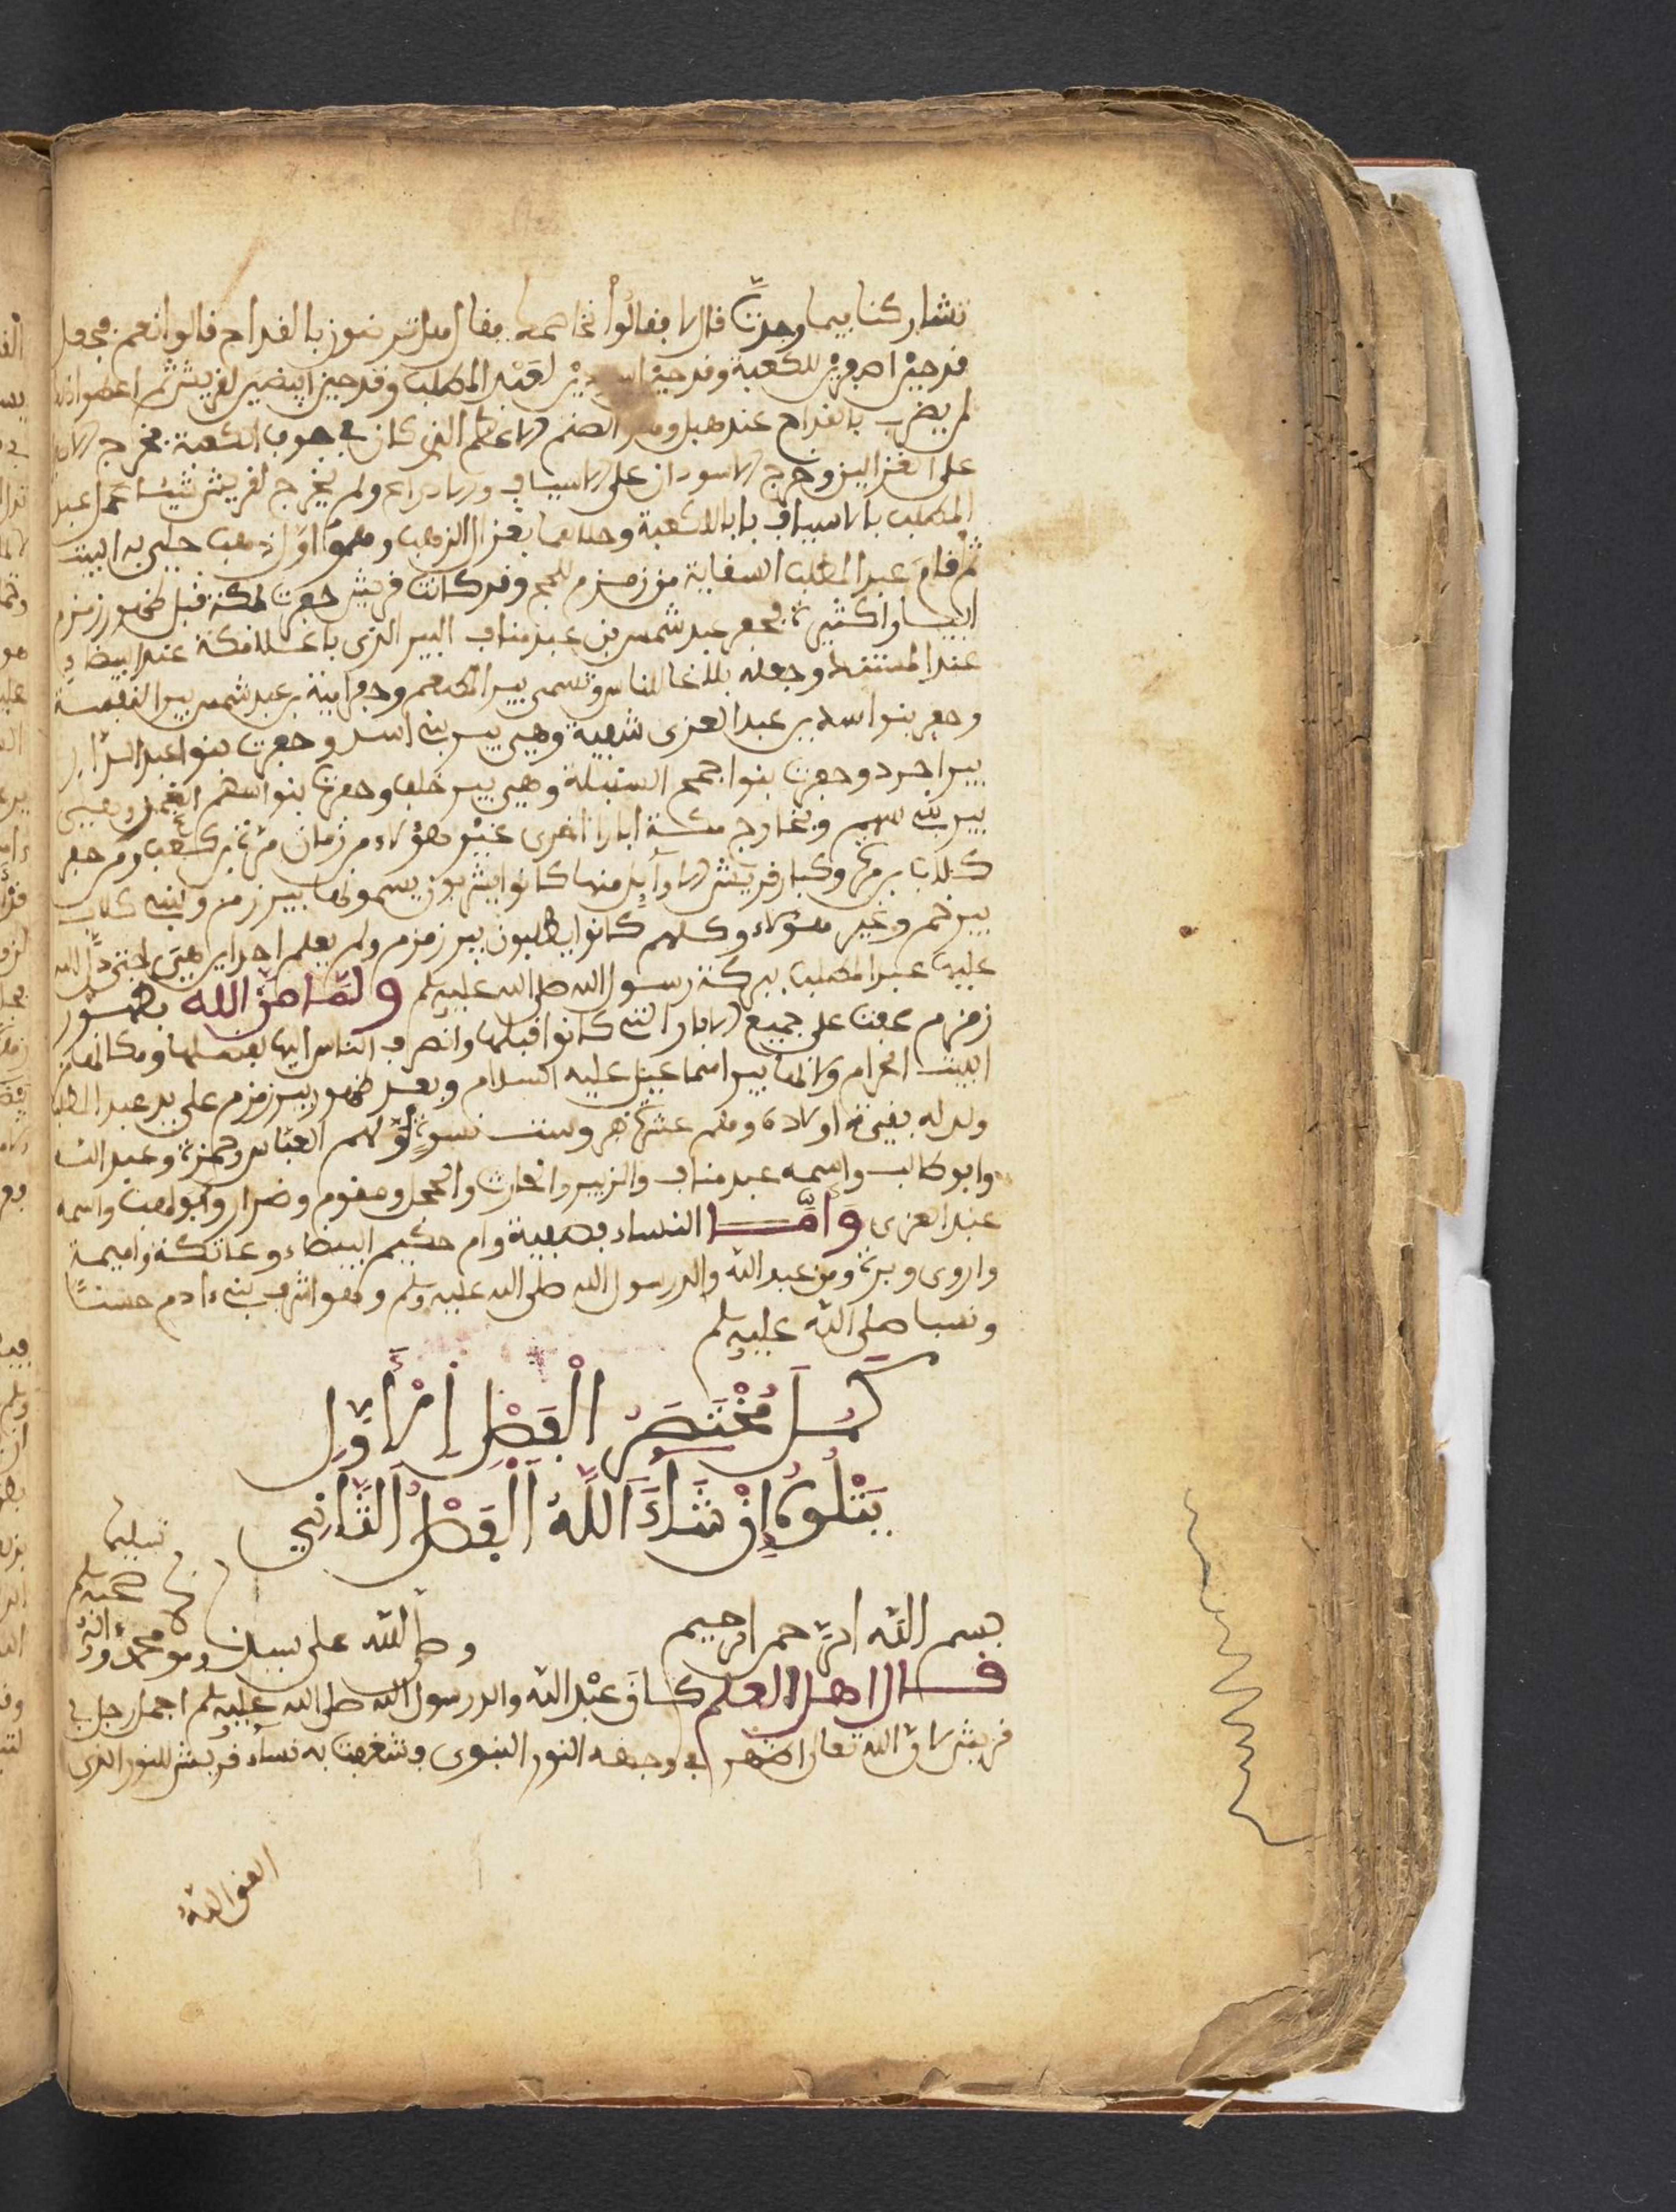 تشاركنا فيما وجدت قال لا فقالوا نخاصمه فقال هل ترضون بالقداح قالوا نعم فجعل
قدحين اصفرين للكعبة وقدحين اسودين لعبد المطلب وقدحين ابيضين لقريش ثم اعطوا ذلك
لمن يضرب بالقداح عند هبل وهو الصنم الاعظم الذي كان في جوف الكعبة فخرج
على الغزالين وخرج الاسودان على الاسياف والادراع ولم يخرج لقريش شيئا فجعل عبد
المطلب بالاسياف بابا للكعبة وحلاها بغزال الذهب وهو اول ذهب حلي به البيت
ثم اقام عبد المطلب السقاية من زمزم للحج وقد كانت قريش حفرت بمكة قبل ظهور زمزم
ابيارا كثيرة فحفر عبد شمس بن عبد مناف البير الذي باعلا مكة عند البيضاء
عند المستنذر وجعله بلاغا للناس وتسمى بير المطعم وحفر امية بن عبد شمس بير
وحفر بنوا اسد بن عبد العزى شفية وهي بير بني اسد وحفرت بنوا عبد الدار
بير اجرد وحفرت بنوا جمح السنبلة وهي بير خلف وحفرت بنوا سهم الغمر وهي
بير بني سهم وبخارج مكة ابارا اخرى غير هؤلاء من زمان مرة بن كعب ومن حفر
كلاب بن مرة وكبار قريش الاوايل منها كانوا يشربون يسمونها بير زمن وبني كلاب
بير خم وغير هؤلاء وكلهم كانوا يطلبون بير زمزم ولم يعلم احد اين هي حتى دل الله
عليها عبد المطلب ببركة رسول الله صلى الله عليه وسلم ولما من الله بظهور
زمزم عفت على جميع الابار التي كانوا قبلها وانصرف الناس اليها لفضلها ومكانها من
البيت الحرام ولانها بير اسماعيل عليه السلام وبعد ظهور بير زمزم على يد عبد المطلب
ولد له بقية اولاده وهم عشرة نفر وست نسوة اولهم العباس وحمزة وعبد الله
وابو طالب واسمه عبد مناف والزبير والحارث والحجل ومقوم وضرار وابو لهب واسمه
عبد العزى واما النساء فصفية وام حكيم البيضاء وعاتكة واميمة
واروى وبرة ومن عبد الله والد رسول الله صلى الله عليه وسلم وهو اشرف بني ءادم حسبا
ونسبا صلى الله عليه وسلم
كمل مختصر الفصل الاول
يتلوه ان شاء الله الفصل الثاني
بسم الله الرحمن الرحيم وصلى الله على سيدنا ومو محمد وءاله
وصحبه وسلم
تسليما
قال اهل العلم كان عبد الله والد رسول الله صلى الله عليه وسلم اجمل رجل في
قريش لان الله تعالى اظهر في وجهه النور النبوي وشغفت به نساء قريش للنور الذي